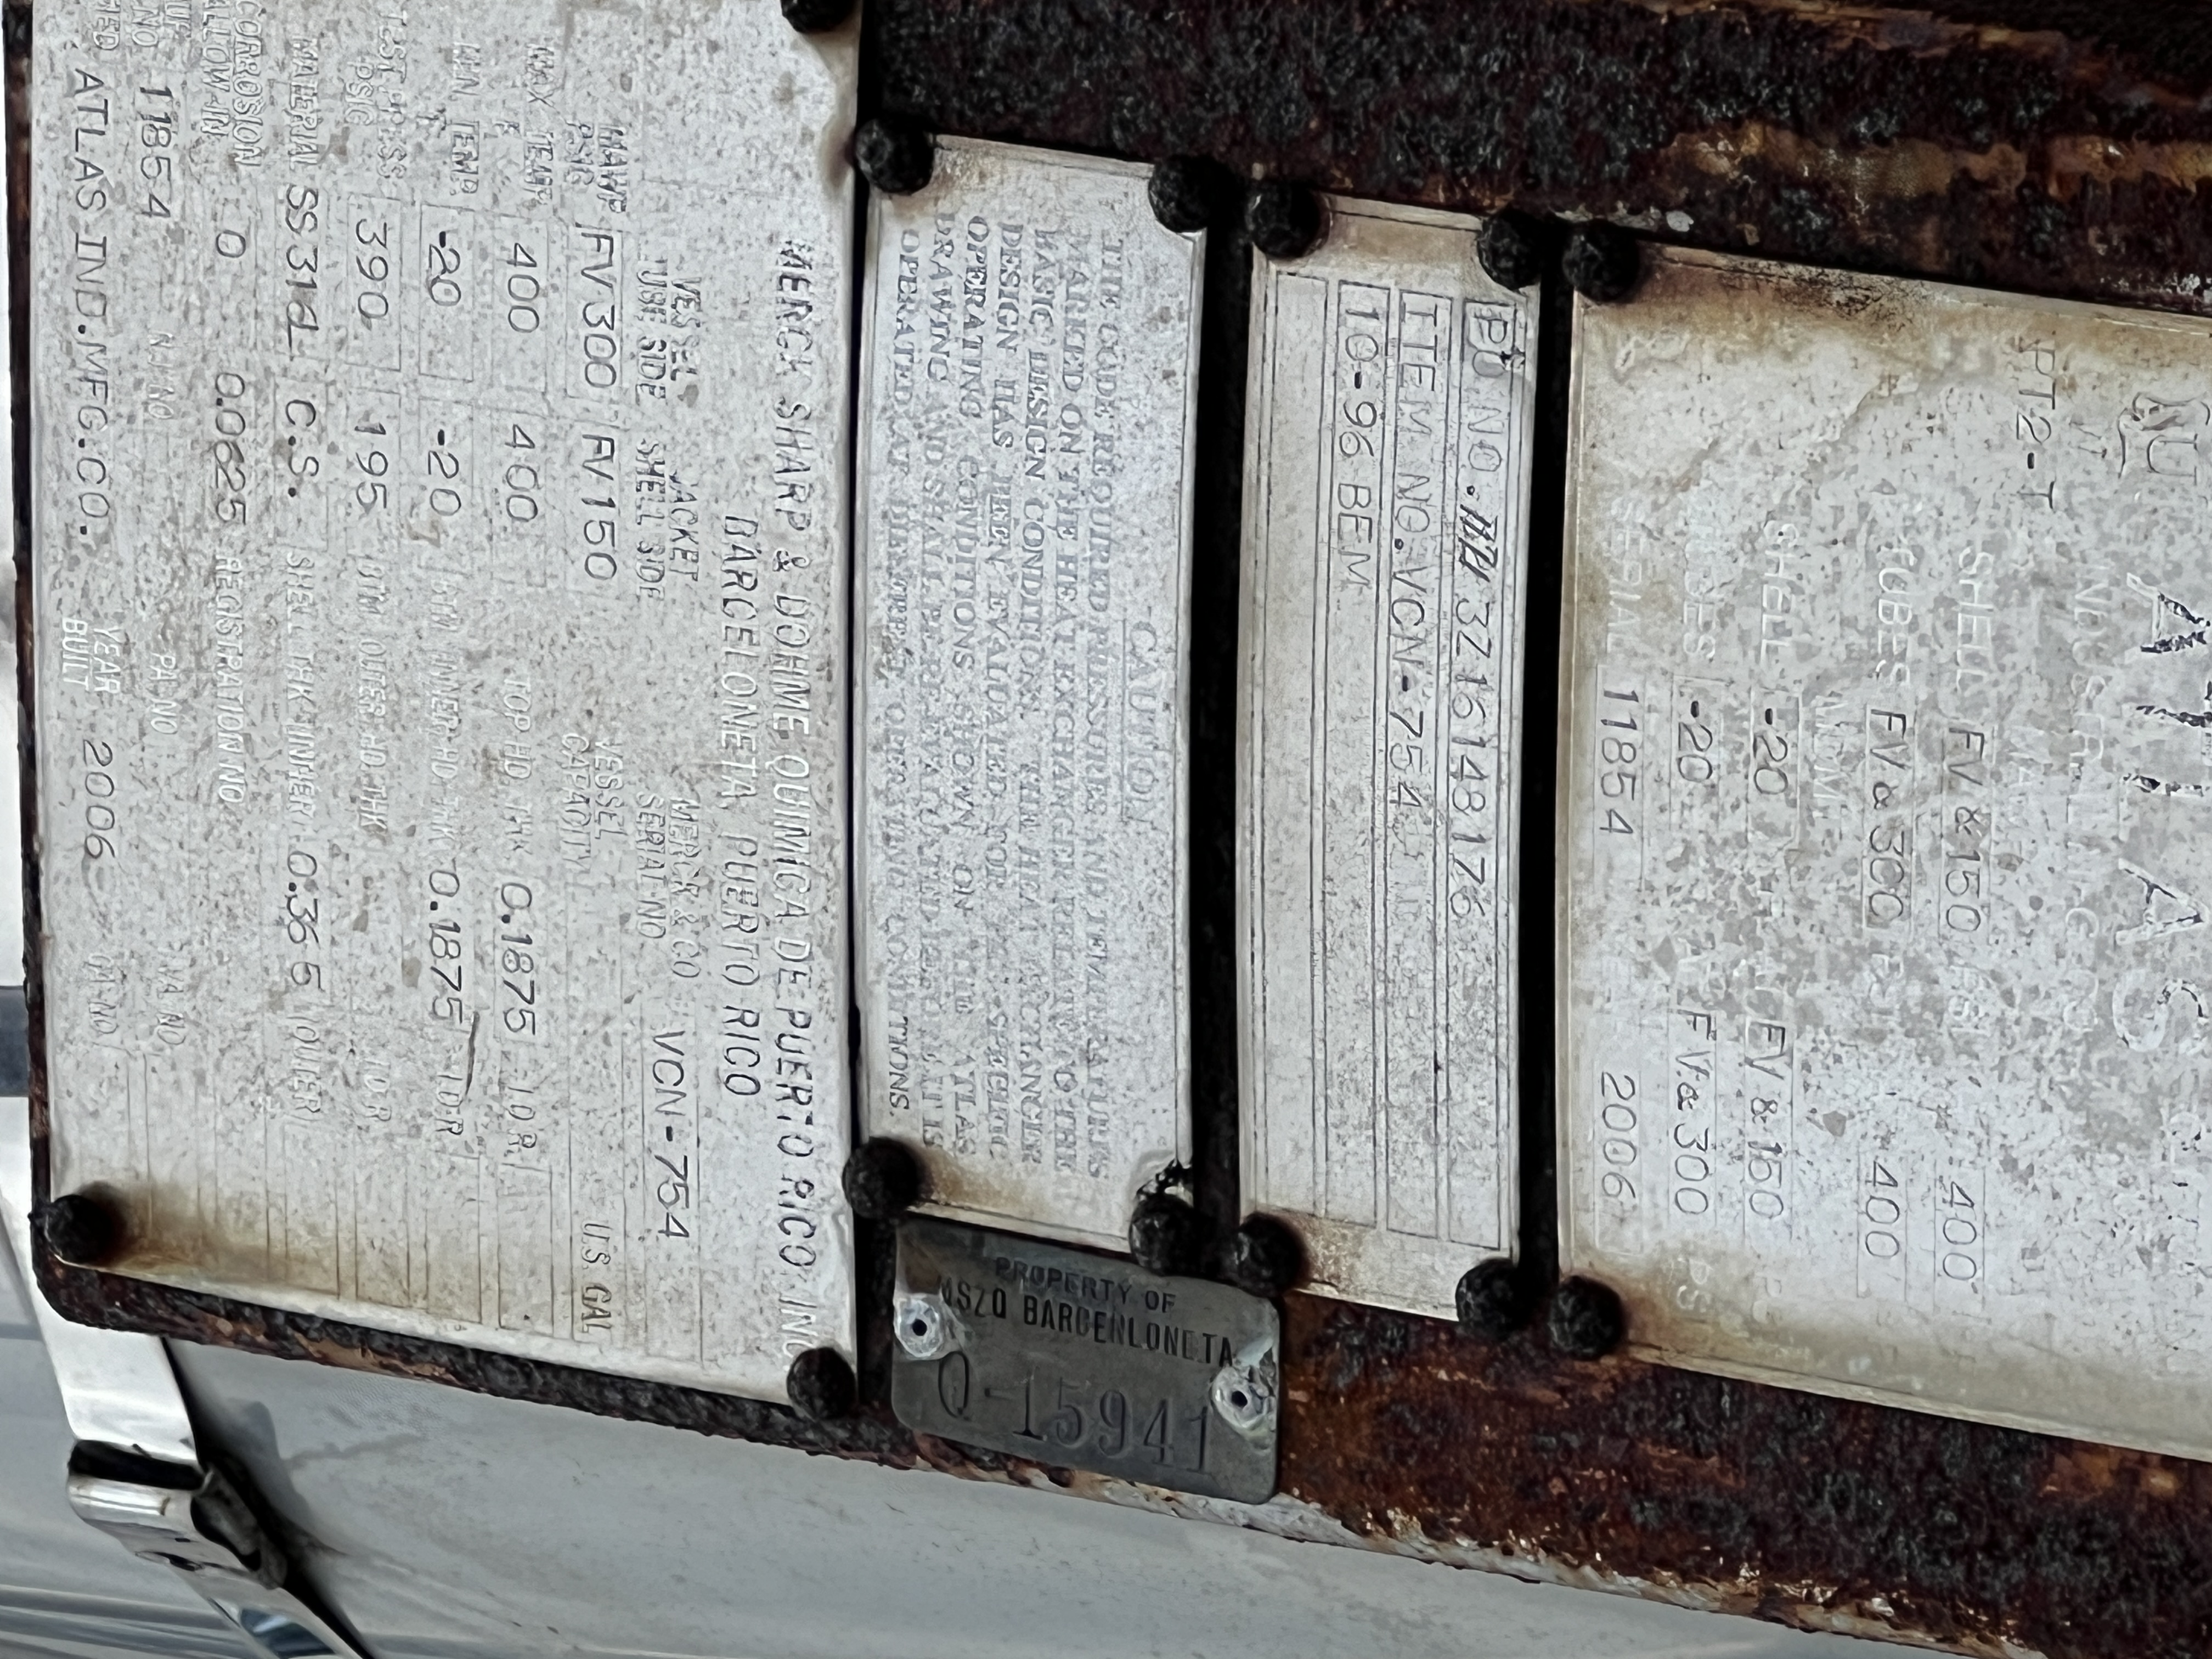 ATLAS
INDUSTRIAL MFG CO
U
PT2-T
SHELL FV & 150 PSI 400
TUBES FV & 300 PSI 400
SHELL -20 FV & 150
TUBES -20 FV & 300
SERIAL 11854 2006
PO NO. 3Z16148176
ITEM NO. VCN-754
10-96 BEM
CAUTION
THE CODE REQUIRED PRESSURES AND TEMPERATURES
MARKED ON THE HEAT EXCHANGER RELATE TO THE
BASIC DESIGN CONDITIONS. THE HEAT EXCHANGER
DESIGN HAS BEEN EVALUATED FOR THE SPECIFIC
OPERATING CONDITIONS SHOWN ON THE ATLAS
DRAWING AND SHALL BE RE-EVALUATED BEFORE IT IS
OPERATED AT DIFFERENT OPERATING CONDITIONS.
PROPERTY OF
MSZQ BARCENLONETA
Q-15941
MERCK SHARP & DOHME QUIMICA DE PUERTO RICO INC
BARCELONETA PUERTO RICO
VESSEL JACKET MERCK & CO
TUBE SIDE SHELL SIDE SERIAL NO VCN-754
MAWP PSIG FV300 FV150 VESSEL CAPACITY U.S. GAL
MAX TEMP F 400 400 TOP HD THK 0.1875 IDR
MIN TEMP F -20 -20 BTM INNER HD THK 0.1875 IDR
TEST PRESS PSIG 390 195 BTM OUTER HD THK IDR
MATERIAL SS316L C.S. SHELL THK INNER 0.365 OUTER
CORROSION ALLOW-IN 0 0.0625 REGISTRATION NO
NO 11854 NJ NO PA NO VA NO
ATLAS IND. MFG. CO. YEAR BUILT 2006